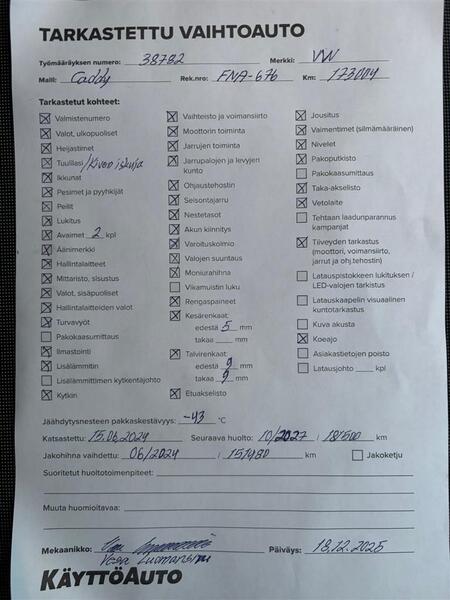 TARKASTETTU VAIHTOAUTO
Työmääräyksen numero: 38782 Merkki: VW
Malli: Caddy Rek.nro: FNA-676 Km: 173004
Tarkastetut kohteet:
Valmistenumero
Valot, ulkopuoliset
Heijastimet
Tuulilasi/Kiven iskuja
Ikkunat
Pesimet ja pyyhkijät
Peilit
Lukitus
Avaimet 2 kpl
Äänimerkki
Hallintalaitteet
Mittaristo, sisustus
Valot, sisäpuoliset
Hallintalaitteiden valot
Turvavyöt
Pakokaasumittaus
Ilmastointi
Lisälämmitin
Lisälämmittimen kytkentäjohto
Kytkin
Vaihteisto ja voimansiirto
Moottorin toiminta
Jarrujen toiminta
Jarrupalojen ja levyjen
kunto
Ohjaustehostin
Seisontajarru
Nestetasot
Akun kiinnitys
Varoituskolmio
Valojen suuntaus
Moniurahihna
Vikamuistin luku
Rengaspaineet
Kesärenkaat:
edestä 5 mm
takaa mm
Talvirenkaat:
edestä 9 mm
takaa 9 mm
Etuakselisto
Jousitus
Vaimentimet (silmämääräinen)
Nivelet
Pakoputkisto
Pakokaasumittaus
Taka-akselisto
Vetolaite
Tehtaan laadunparannus
kampanjat
Tiiveyden tarkastus
(moottori, voimansiirto,
jarrut ja ohj.tehostin)
Latauspistokkeen lukituksen /
LED-valojen tarkistus
Latauskaapelin visuaalinen
kuntotarkastus
Kuva akusta
Koeajo
Asiakastietojen poisto
Latausjohto kpl
Jäähdytysnesteen pakkaskestävyys: -43 °C
Katsastettu: 15.06.2024 Seuraava huolto: 10/2027 / 181500 km
Jakohihna vaihdettu: 06/2024 / 151980 km Jakoketju
Suoritetut huoltotoimenpiteet:
Muuta huomioitavaa:
Mekaanikko: Päiväys: 18.12.2025
Vesa
KÄYTTÖAUTO